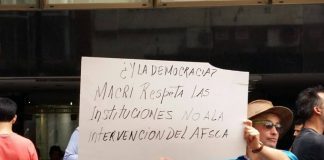 ¿Y LA DEMOCRACIA?
MACRI Respeta LAS
Instituciones NO A LA
intervención DEL AFSCA